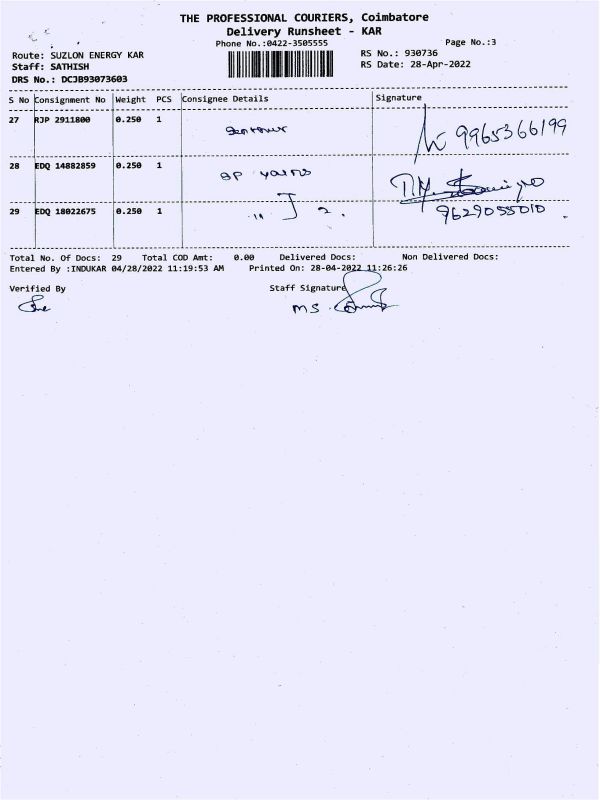 THE PROFESSIONAL COURIERS, Coimbatore
Delivery Runsheet - KAR
Phone No.:0422-3505555
Page No.:3
Route: SUZLON ENERGY KAR
RS No.: 930736
Staff: SATHISH
RS Date: 28-Apr-2022
DRS No.: DCJB93073603
S No Consignment No Weight PCS Consignee Details Signature
27 RJP 2911800 0.250 1
9965366199
28 EDQ 14882859 0.250 1 SP yarns
29 EDQ 18022675 0.250 1 " J 2.
9629055010
Total No. Of Docs: 29 Total COD Amt: 0.00 Delivered Docs: Non Delivered Docs:
Entered By :INDUKAR 04/28/2022 11:19:53 AM Printed On: 28-04-2022 11:26:26
Verified By Staff Signature
MS.